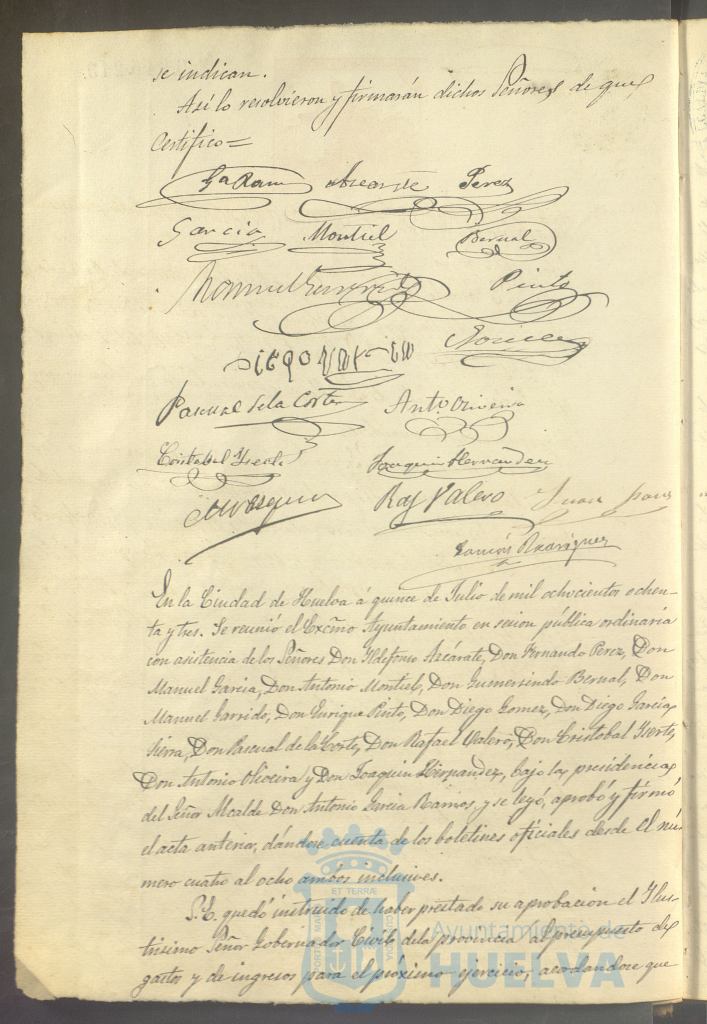 se indican.
Asi lo resolvieron y firmarán dichos Señores de que
Certifico=
Azcarate Perez
Garcia Montiel Bernal
Manuel Pinto
Pascual de la Corte Antº Oliveira
Cristobal Joaquin Hernandez
Raf Valero Juan
Ramón Rodriguez
En la Ciudad de Huelva á quince de Julio de mil ochocientos ochen-
ta y tres. Se reunió el Excmo Ayuntamiento en sesion pública ordinaria
con asistencia de los Señores Don Ildefonso Azcárate, Don Fernando Perez, Don
Manuel Garcia, Don Antonio Montiel, Don Gumersindo Bernal, Don
Manuel Garrido, Don Enrique Pinto, Don Diego Gomez, Don Diego Garcia
Sierra, Don Pascual de la Corte, Don Rafael Valero, Don Cristobal
Don Antonio Oliveira y Don Joaquin Hernandez, bajo la presidencia
del Señor Alcalde Don Antonio Garcia Ramos, y se leyó, aprobó y firmó
el acta anterior, dándose cuenta de los boletines oficiales desde el nú-
mero cuatro al ocho ambos inclusives.
S.E. quedó instruido de haber prestado su aprobacion el Ilus-
trisimo Señor Gobernador Civil de la provincia al presupuesto de
gastos y de ingresos para el próximo ejercicio, acordandose que
ET TERRÆ
Ayuntamiento de
HUELVA